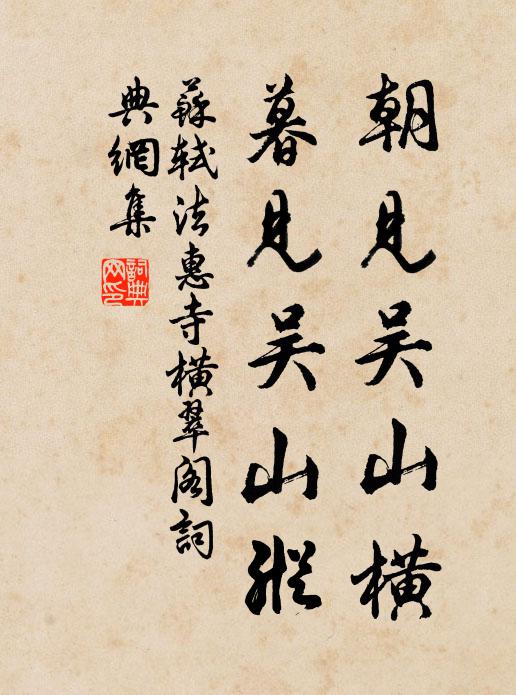 朝見吳山橫
暮見吳山縱
蘇軾法惠寺橫翠閣詞
典網集
詞典
网印